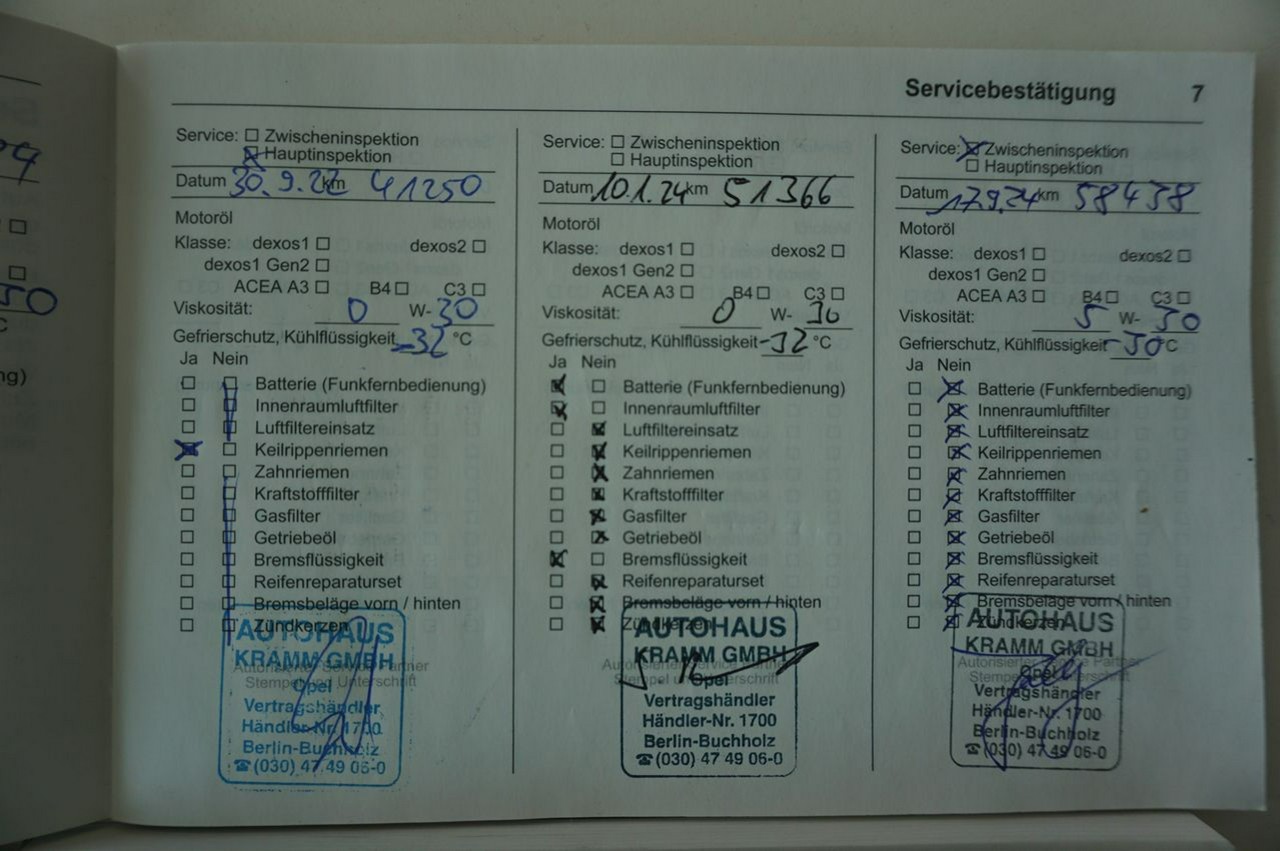 Servicebestätigung 7
Service: Zwischeninspektion
Hauptinspektion
Datum 30.9.22 km 41250
Motoröl
Klasse: dexos1 dexos2
dexos1 Gen2
ACEA A3 B4 C3
Viskosität: 0 W-30
Gefrierschutz, Kühlflüssigkeit -32 °C
Ja Nein
Batterie (Funkfernbedienung)
Innenraumluftfilter
Luftfiltereinsatz
Keilrippenriemen
Zahnriemen
Kraftstofffilter
Gasfilter
Getriebeöl
Bremsflüssigkeit
Reifenreparaturset
Bremsbeläge vorn / hinten
Zündkerzen
Autorisierter Service Partner
Stempel und Unterschrift
AUTOHAUS
KRAMM GMBH
Opel
Vertragshändler
Händler-Nr. 1700
Berlin-Buchholz
☎(030) 47 49 06-0
Service: Zwischeninspektion
Hauptinspektion
Datum 10.1.24 km 51366
Motoröl
Klasse: dexos1 dexos2
dexos1 Gen2
ACEA A3 B4 C3
Viskosität: 0 W-30
Gefrierschutz, Kühlflüssigkeit -32 °C
Ja Nein
Batterie (Funkfernbedienung)
Innenraumluftfilter
Luftfiltereinsatz
Keilrippenriemen
Zahnriemen
Kraftstofffilter
Gasfilter
Getriebeöl
Bremsflüssigkeit
Reifenreparaturset
Bremsbeläge vorn / hinten
Zündkerzen
Autorisierter Service Partner
Stempel und Unterschrift
AUTOHAUS
KRAMM GMBH
Opel
Vertragshändler
Händler-Nr. 1700
Berlin-Buchholz
☎(030) 47 49 06-0
Service: Zwischeninspektion
Hauptinspektion
Datum 17.9.24 km 58438
Motoröl
Klasse: dexos1 dexos2
dexos1 Gen2
ACEA A3 B4 C3
Viskosität: 5 W-30
Gefrierschutz, Kühlflüssigkeit -30 °C
Ja Nein
Batterie (Funkfernbedienung)
Innenraumluftfilter
Luftfiltereinsatz
Keilrippenriemen
Zahnriemen
Kraftstofffilter
Gasfilter
Getriebeöl
Bremsflüssigkeit
Reifenreparaturset
Bremsbeläge vorn / hinten
Zündkerzen
Autorisierter Service Partner
Stempel und Unterschrift
AUTOHAUS
KRAMM GMBH
Opel
Vertragshändler
Händler-Nr. 1700
Berlin-Buchholz
☎(030) 47 49 06-0